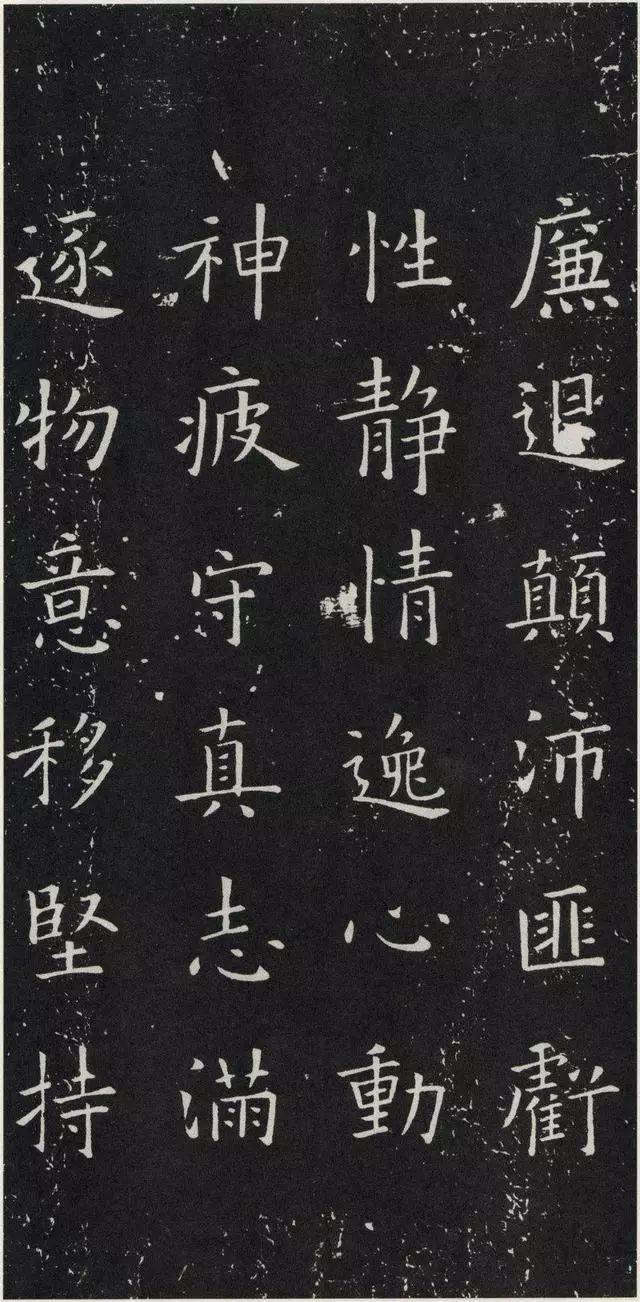 廉退顛沛匪虧
性静情逸心動
神疲守真志滿
逐物意移堅持